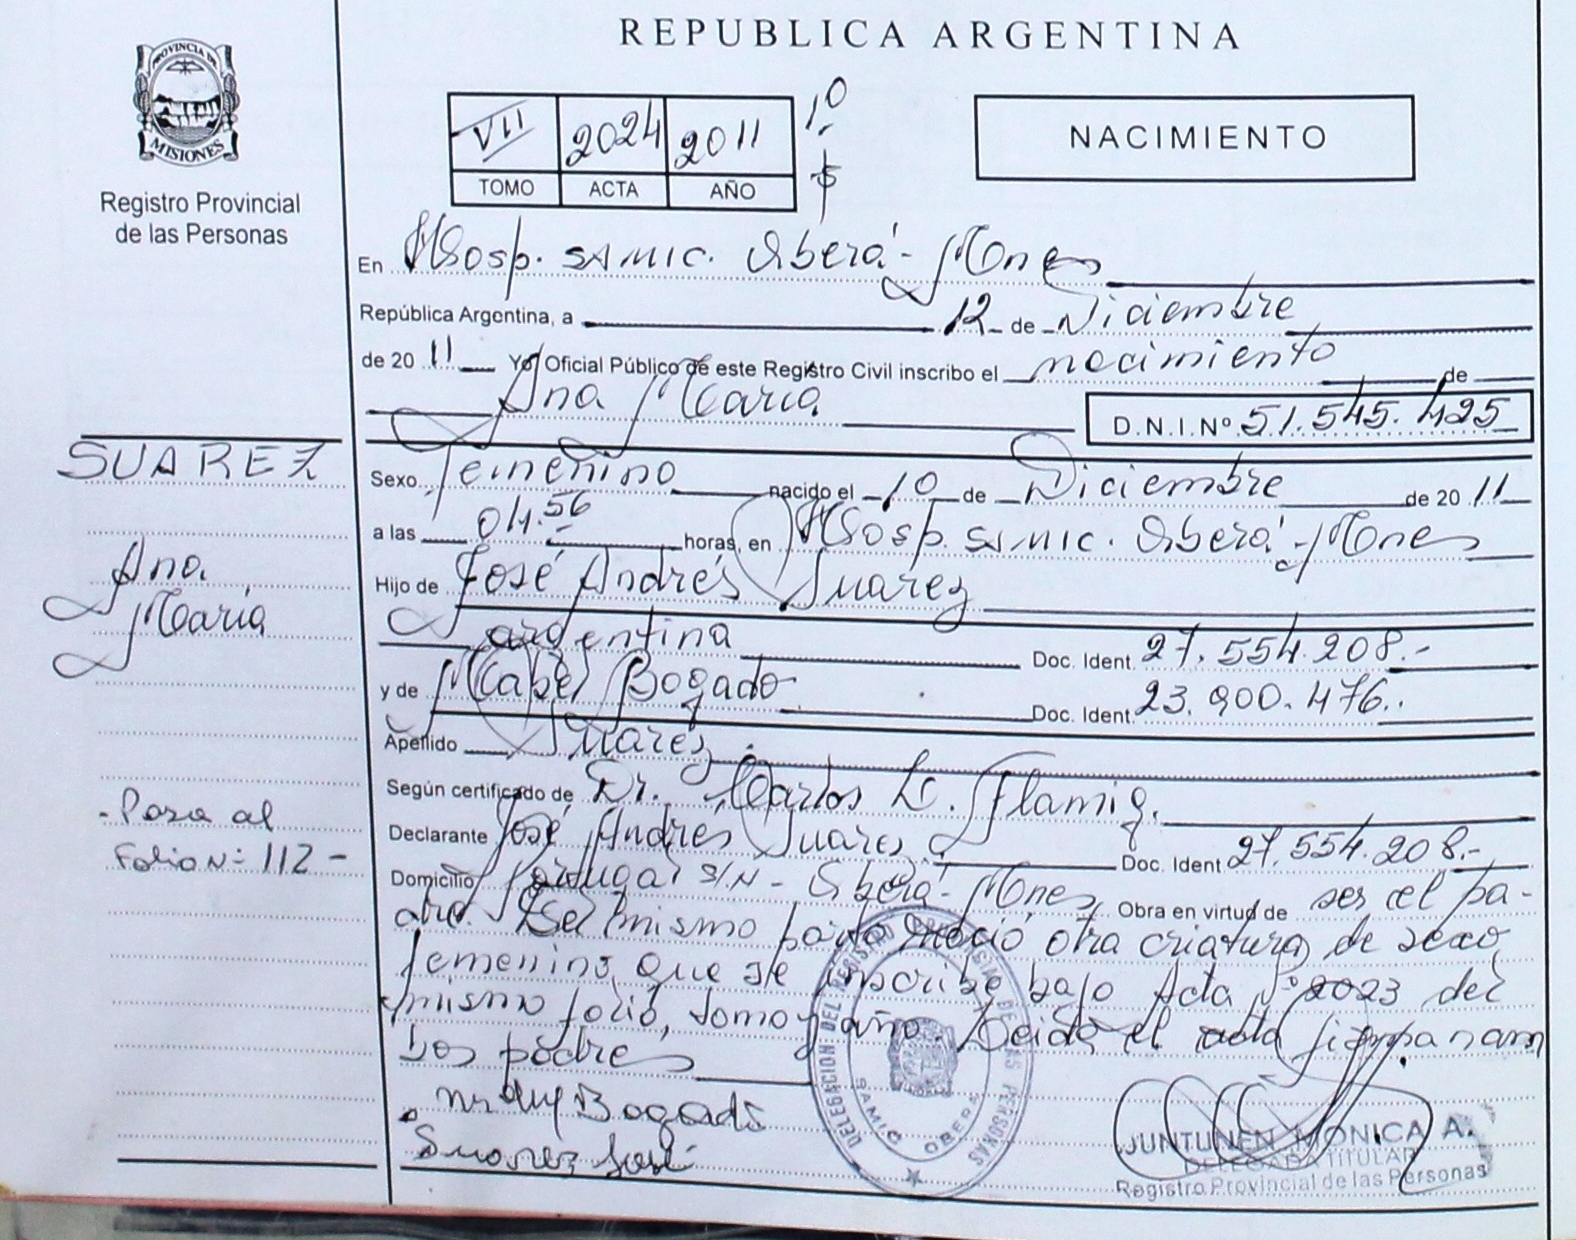 REPUBLICA ARGENTINA
PROVINCIA DE
MISIONES
Registro Provincial
de las Personas
VII 2024 2011 1º
TOMO ACTA AÑO
NACIMIENTO
En Hosp. SAMIC. Oberá - Mones
República Argentina, a 12 de Diciembre
de 20 11 Yo Oficial Público de este Registro Civil inscribo el nacimiento de
Ana María
D.N.I.Nº 51.545.425
SUAREZ
Ana
María
Sexo Femenino nacido el 10 de Diciembre de 20 11
a las 04.56 horas, en Hosp. SAMIC. Oberá - Mones
Hijo de José Andrés Suarez
argentina Doc. Ident. 27.554.208.-
y de Mabel Bogado Doc. Ident. 23.900.476..
Apellido Suarez.
Según certificado de Dr. Carlos L. Flamig.
Declarante José Andrés Suarez Doc. Ident. 27.554.208.-
Domicilio Portugal S/N - Oberá - Mones Obra en virtud de ser el pa-
dre. Del mismo parto nació otra criatura de sexo
femenino que se inscribe bajo Acta Nº 2023 del
mismo folio, tomo y año. Leida el acta firman
los padres
- Pasa al
Folio Nº 112 -
Bogado
Suarez José
DELEGACION DEL REGISTRO PROVINCIAL DE LAS PERSONAS
SAMIC OBERA
JUNTUNEN MONICA A.
DELEGADA TITULAR
Registro Provincial de las Personas